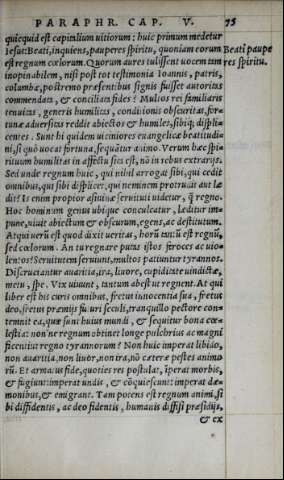 PARAPHR. CAP. V. 75
quicquid est capitalium uitiorum: huic primum medetur
Iesus: Beati, inquiens, pauperes spiritu, quoniam eorum
Beati paupe
est regnum cœlorum. Quorum aures tulissent uocem tam
res spiritu.
inopinabilem, nisi post tot testimonia Ioannis, patris,
columbæ, postremo præsentibus signis fuisset autoritas
commendata, & conciliata fides? Multos rei familiaris
tenuitas, generis humilitas, conditionis obscuritas, for⸗
tunæ aduersitas reddit abiectos & humiles, sibiq; displi⸗
centes. Sunt hi quidem uiciniores euangelicæ beatitudi
ni, si quò uocat fortuna, sequātur animo. Verum hæc spi⸗
rituum humilitas in affectu sita est, nō in rebus extrarijs.
Sed unde regnum huic, qui nihil arrogat sibi, qui cedit
omnibus, qui sibi displicet, qui neminem protrudit aut læ
dit? Is enim propior asininæ seruituti uidetur, q̃ regno.
Hoc hominum genus ubique conculcatur, læditur im⸗
pune, uiuit abiectum & obscurum, egens, ac destitutum.
At qui uerū est quod dixit ueritas, horū tātū est regnū,
sed cœlorum. An tu regnare putas istos feroces ac uio⸗
lentos? Seruitutem seruiunt, multos patiuntur tyrannos.
Discruciantur auaritia, ira, liuore, cupiditate uindictæ,
metu, spe. Vix uiuunt, tantum abest ut regnent. At qui
liber est his curis omnibus, fretus innocentia sua, fretus
deo, fretus præmijs futuri seculi, tranquillo pectore con⸗
temnit ea, quæ sunt huius mundi, & sequitur bona cœ⸗
lestia: nonne regnum obtinet longe pulchrius ac magni
ficentius regno tyrannorum? Non huic imperat libido,
non auaritia, non liuor, non ira, nō cæteræ pestes animo
rū. Et armatus fide, quoties res postulat, īperat morbis,
& fugiunt: imperat undis, & cōquiescunt: imperat dæ⸗
monibus, & emigrant. Tam potens est regnum animi, si
bi diffidentis, ac deo fidentis, humanis diffisi præsidijs,
& ex